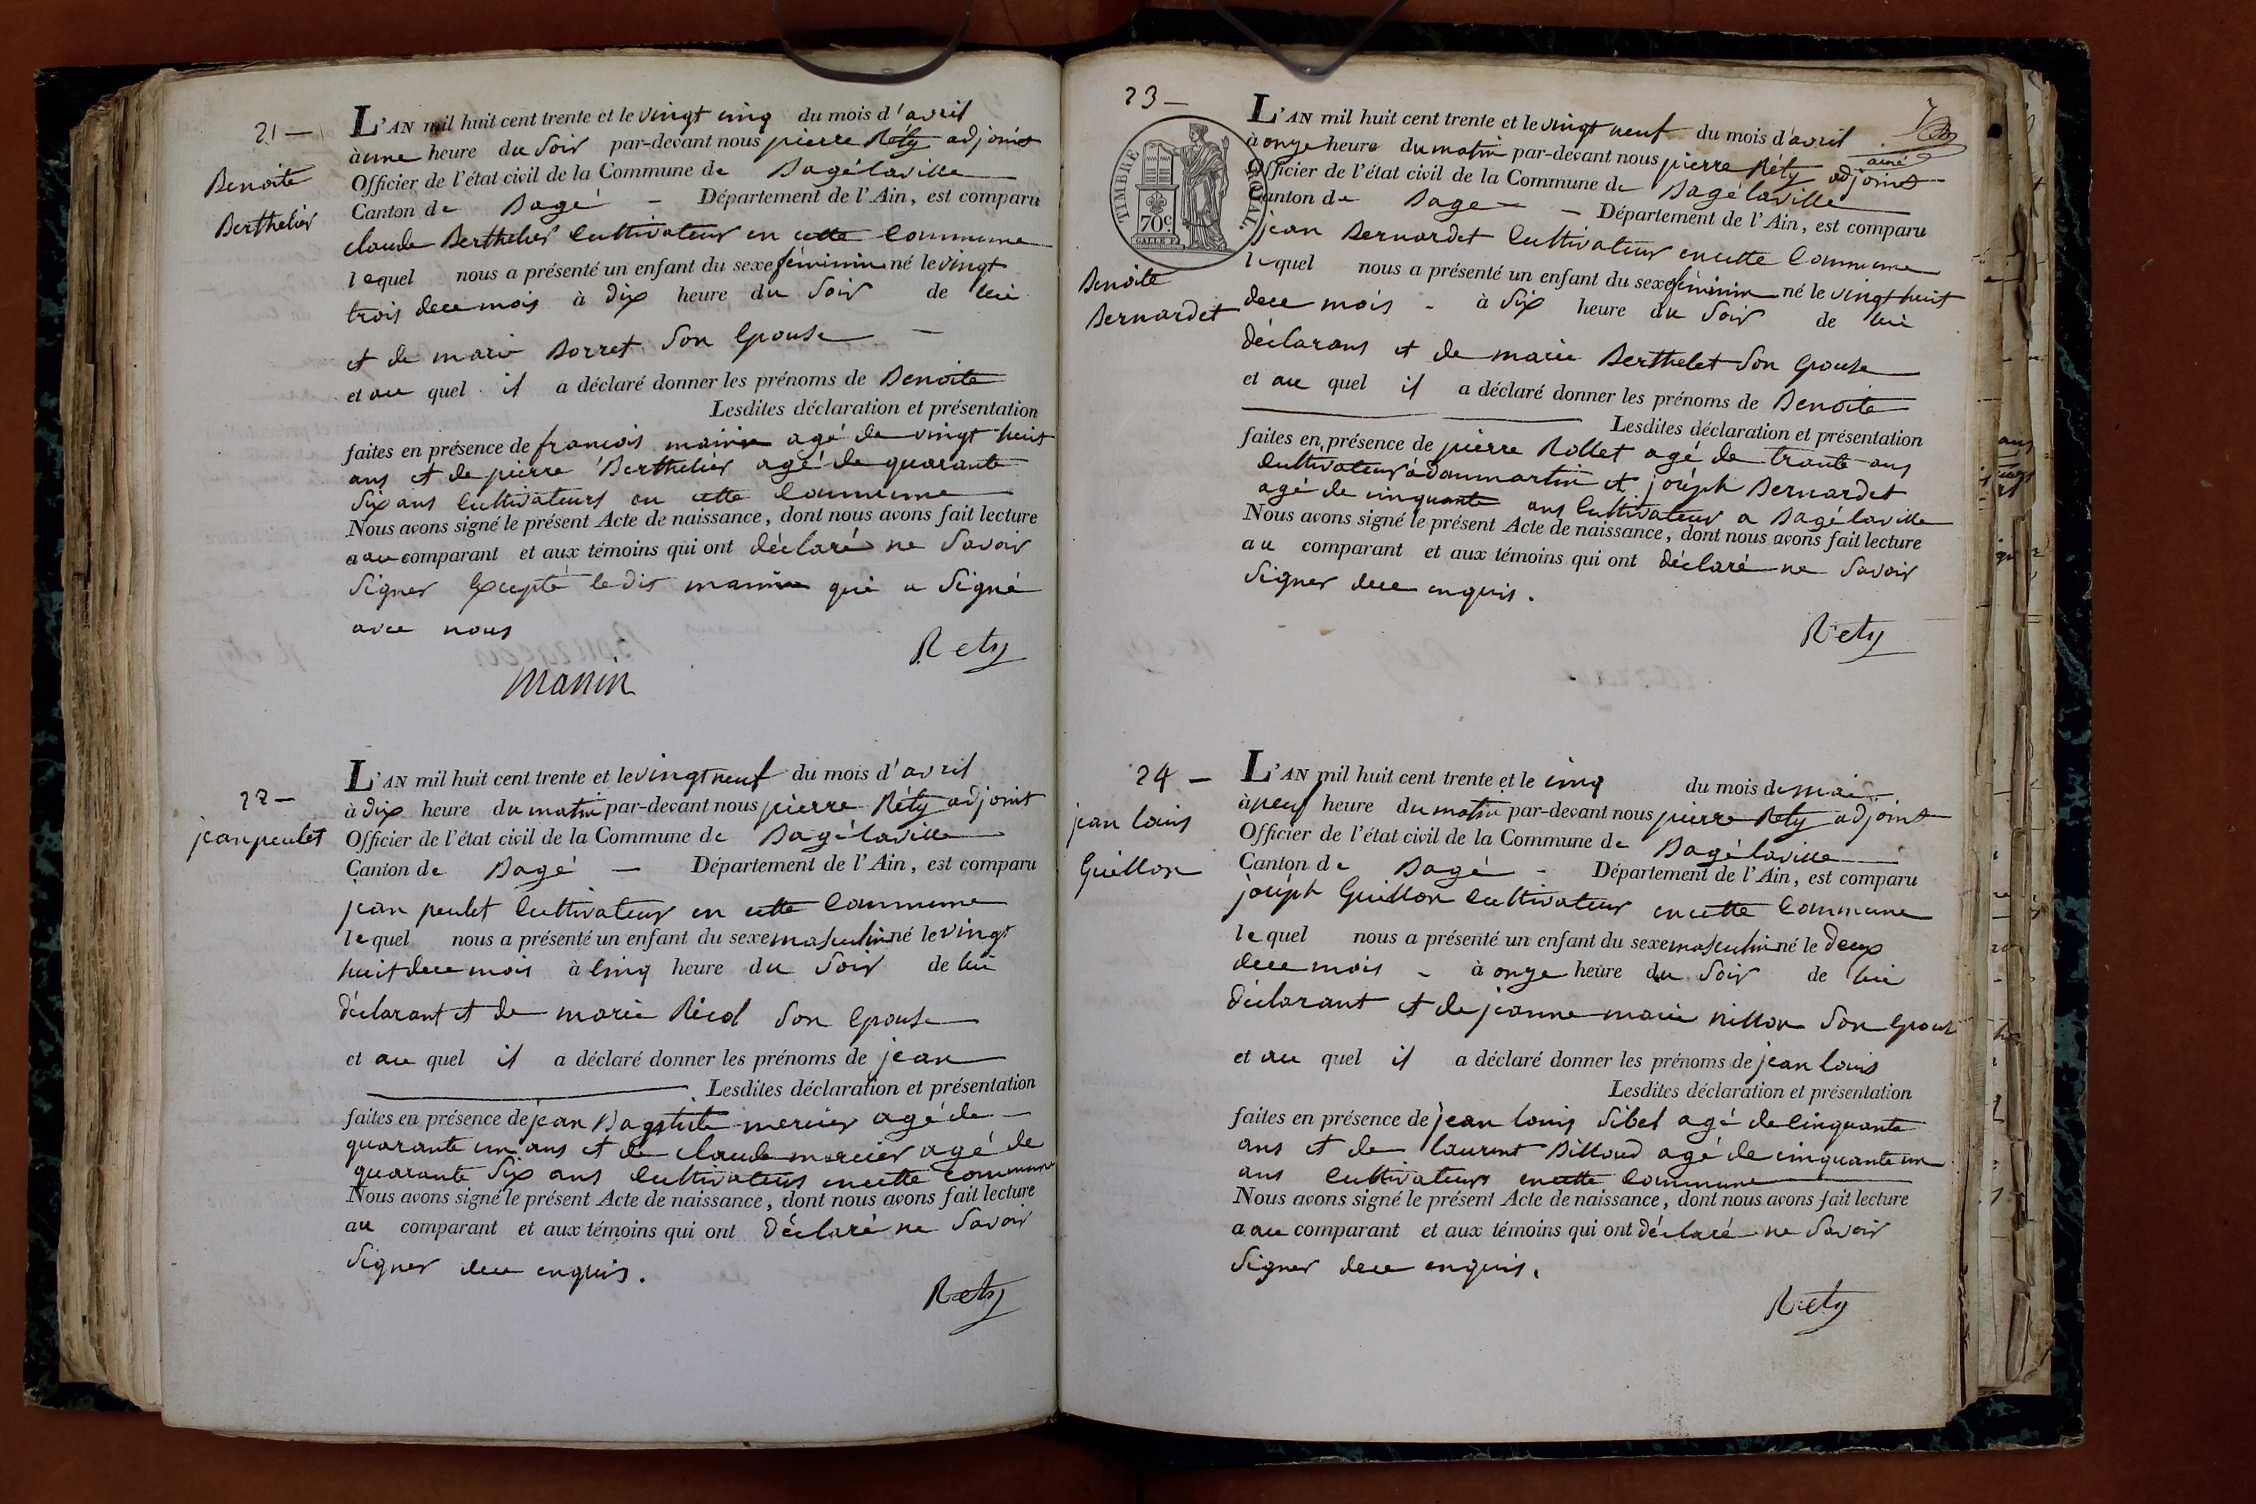 21 —
Benoite
Berthelier
L'AN mil huit cent trente et le vingt cinq du mois d'avril
à une heure du Soir par-devant nous pierre Réty adjoint
Officier de l'état civil de la Commune de Bagé laville
Canton de Bagé — Département de l'Ain, est comparu
claude Berthelier Cultivateur en cette Commune
lequel nous a présenté un enfant du sexe féminin né le vingt
trois de ce mois à dix heure du Soir de lui
et de marie Borret Son Epouse —
et au quel il a déclaré donner les prénoms de Benoite
Lesdites déclaration et présentation
faites en présence de francois manin agé de vingt huit
ans et de pierre Berthelier agé de quarante
Six ans Cultivateurs en cette Commune
Nous avons signé le présent Acte de naissance, dont nous avons fait lecture
a au comparant et aux témoins qui ont déclaré ne Savoir
Signer Excepté le dit manin qui a Signé
avec nous
Rety
Manin
22 —
jean peulet
L'AN mil huit cent trente et le vingt neuf du mois d'avril
à dix heure du matin par-devant nous pierre Réty adjoint
Officier de l'état civil de la Commune de Bagé laville
Canton de Bagé — Département de l'Ain, est comparu
jean peulet Cultivateur en cette Commune
lequel nous a présenté un enfant du sexe masculin né le vingt
huit de ce mois à Cinq heure du Soir de lui
déclarant et de marie Ricol Son Epouse
et au quel il a déclaré donner les prénoms de jean
Lesdites déclaration et présentation
faites en présence de jean Baptiste mercier agé de
quarante un ans et de claude mercier agé de
quarante Six ans Cultivateurs en cette Commune
Nous avons signé le présent Acte de naissance, dont nous avons fait lecture
au comparant et aux témoins qui ont déclaré ne Savoir
Signer de ce enquis.
Rety
23 —
TIMBRE ROYAL
70c
Benoite
Bernardet
L'AN mil huit cent trente et le vingt neuf du mois d'avril
à onze heure du matin par-devant nous pierre Réty adjoint
Officier de l'état civil de la Commune de Bagé laville
Canton de Bagé — Département de l'Ain, est comparu
jean Bernardet Cultivateur en cette Commune
lequel nous a présenté un enfant du sexe féminin né le vingt huit
de ce mois - à Six heure du Soir de lui
déclarans et de marie Berthelet Son Epouse
et au quel il a déclaré donner les prénoms de Benoite
Lesdites déclaration et présentation
faites en présence de pierre Rollet agé de trante ans
Cultivateur à dommartin et joséph Bernardet
agé de cinquante ans Cultivateur a Bagé laville
Nous avons signé le présent Acte de naissance, dont nous avons fait lecture
au comparant et aux témoins qui ont déclaré ne Savoir
Signer de ce enquis.
Rety
24 —
jean louis
Guillon
L'AN mil huit cent trente et le cinq du mois de mai
à neuf heure du matin par-devant nous pierre Rety adjoint
Officier de l'état civil de la Commune de Bagé laville
Canton de Bagé - Département de l'Ain, est comparu
joséph Guillon Cultivateur en cette Commune
lequel nous a présenté un enfant du sexe masculin né le deux
de ce mois - à onze heure du Soir de lui
déclarant et de jeanne marie nillon Son Epouse
et au quel il a déclaré donner les prénoms de jean louis
Lesdites déclaration et présentation
faites en présence de jean louis Sibel agé de Cinquante
ans et de laurent Billoud agé de cinquante un
ans Cultivateurs en cette Commune
Nous avons signé le présent Acte de naissance, dont nous avons fait lecture
a au comparant et aux témoins qui ont déclaré ne Savoir
Signer de ce enquis.
Rety